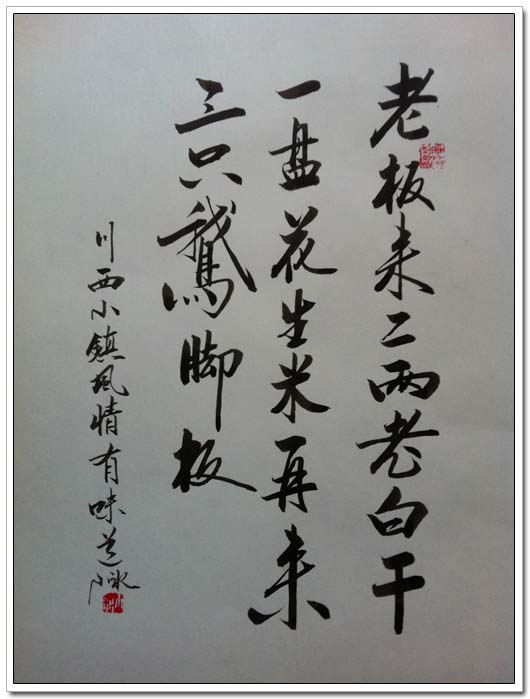 老板来二两老白干
一盘花生米再来
三只鹅脚板
川西小鎮风情有味道